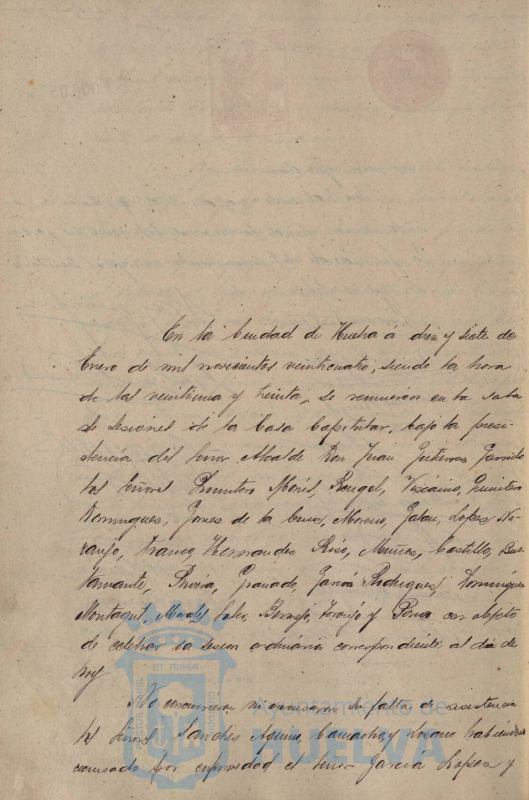 En la Ciudad de Huelva á diez y siete de
Enero de mil novecientos veinticuatro, siendo la hora
de las veintiuna y treinta, se reunieron en la sala
de sesiones de la Casa Capitular, bajo la presi-
dencia del Señor Alcalde Don Juan Gutierrez Garrido
los Señores Quintero Rangel, Vizcaino, Quintero
Dominguez, Gomez de la Cruz, Moreno, Galan, Lopez Na-
ranjo, Franco, Hernandez Riso, Muñoz, Castillo, Bus-
tamante, Rivera, Granado, Garcia Rodriguez, Dominguez
Montagut, Bermejo, y con objeto
de celebrar la sesion ordinaria correspondiente al dia de
hoy
No concurrieron ni excusaron su falta de asistencia
los Señores Sanchez Aquino, Camacho y Lozano habiendose
excusado por enfermedad el Señor Garcia Lopez y
Ayuntamiento de
HUELVA